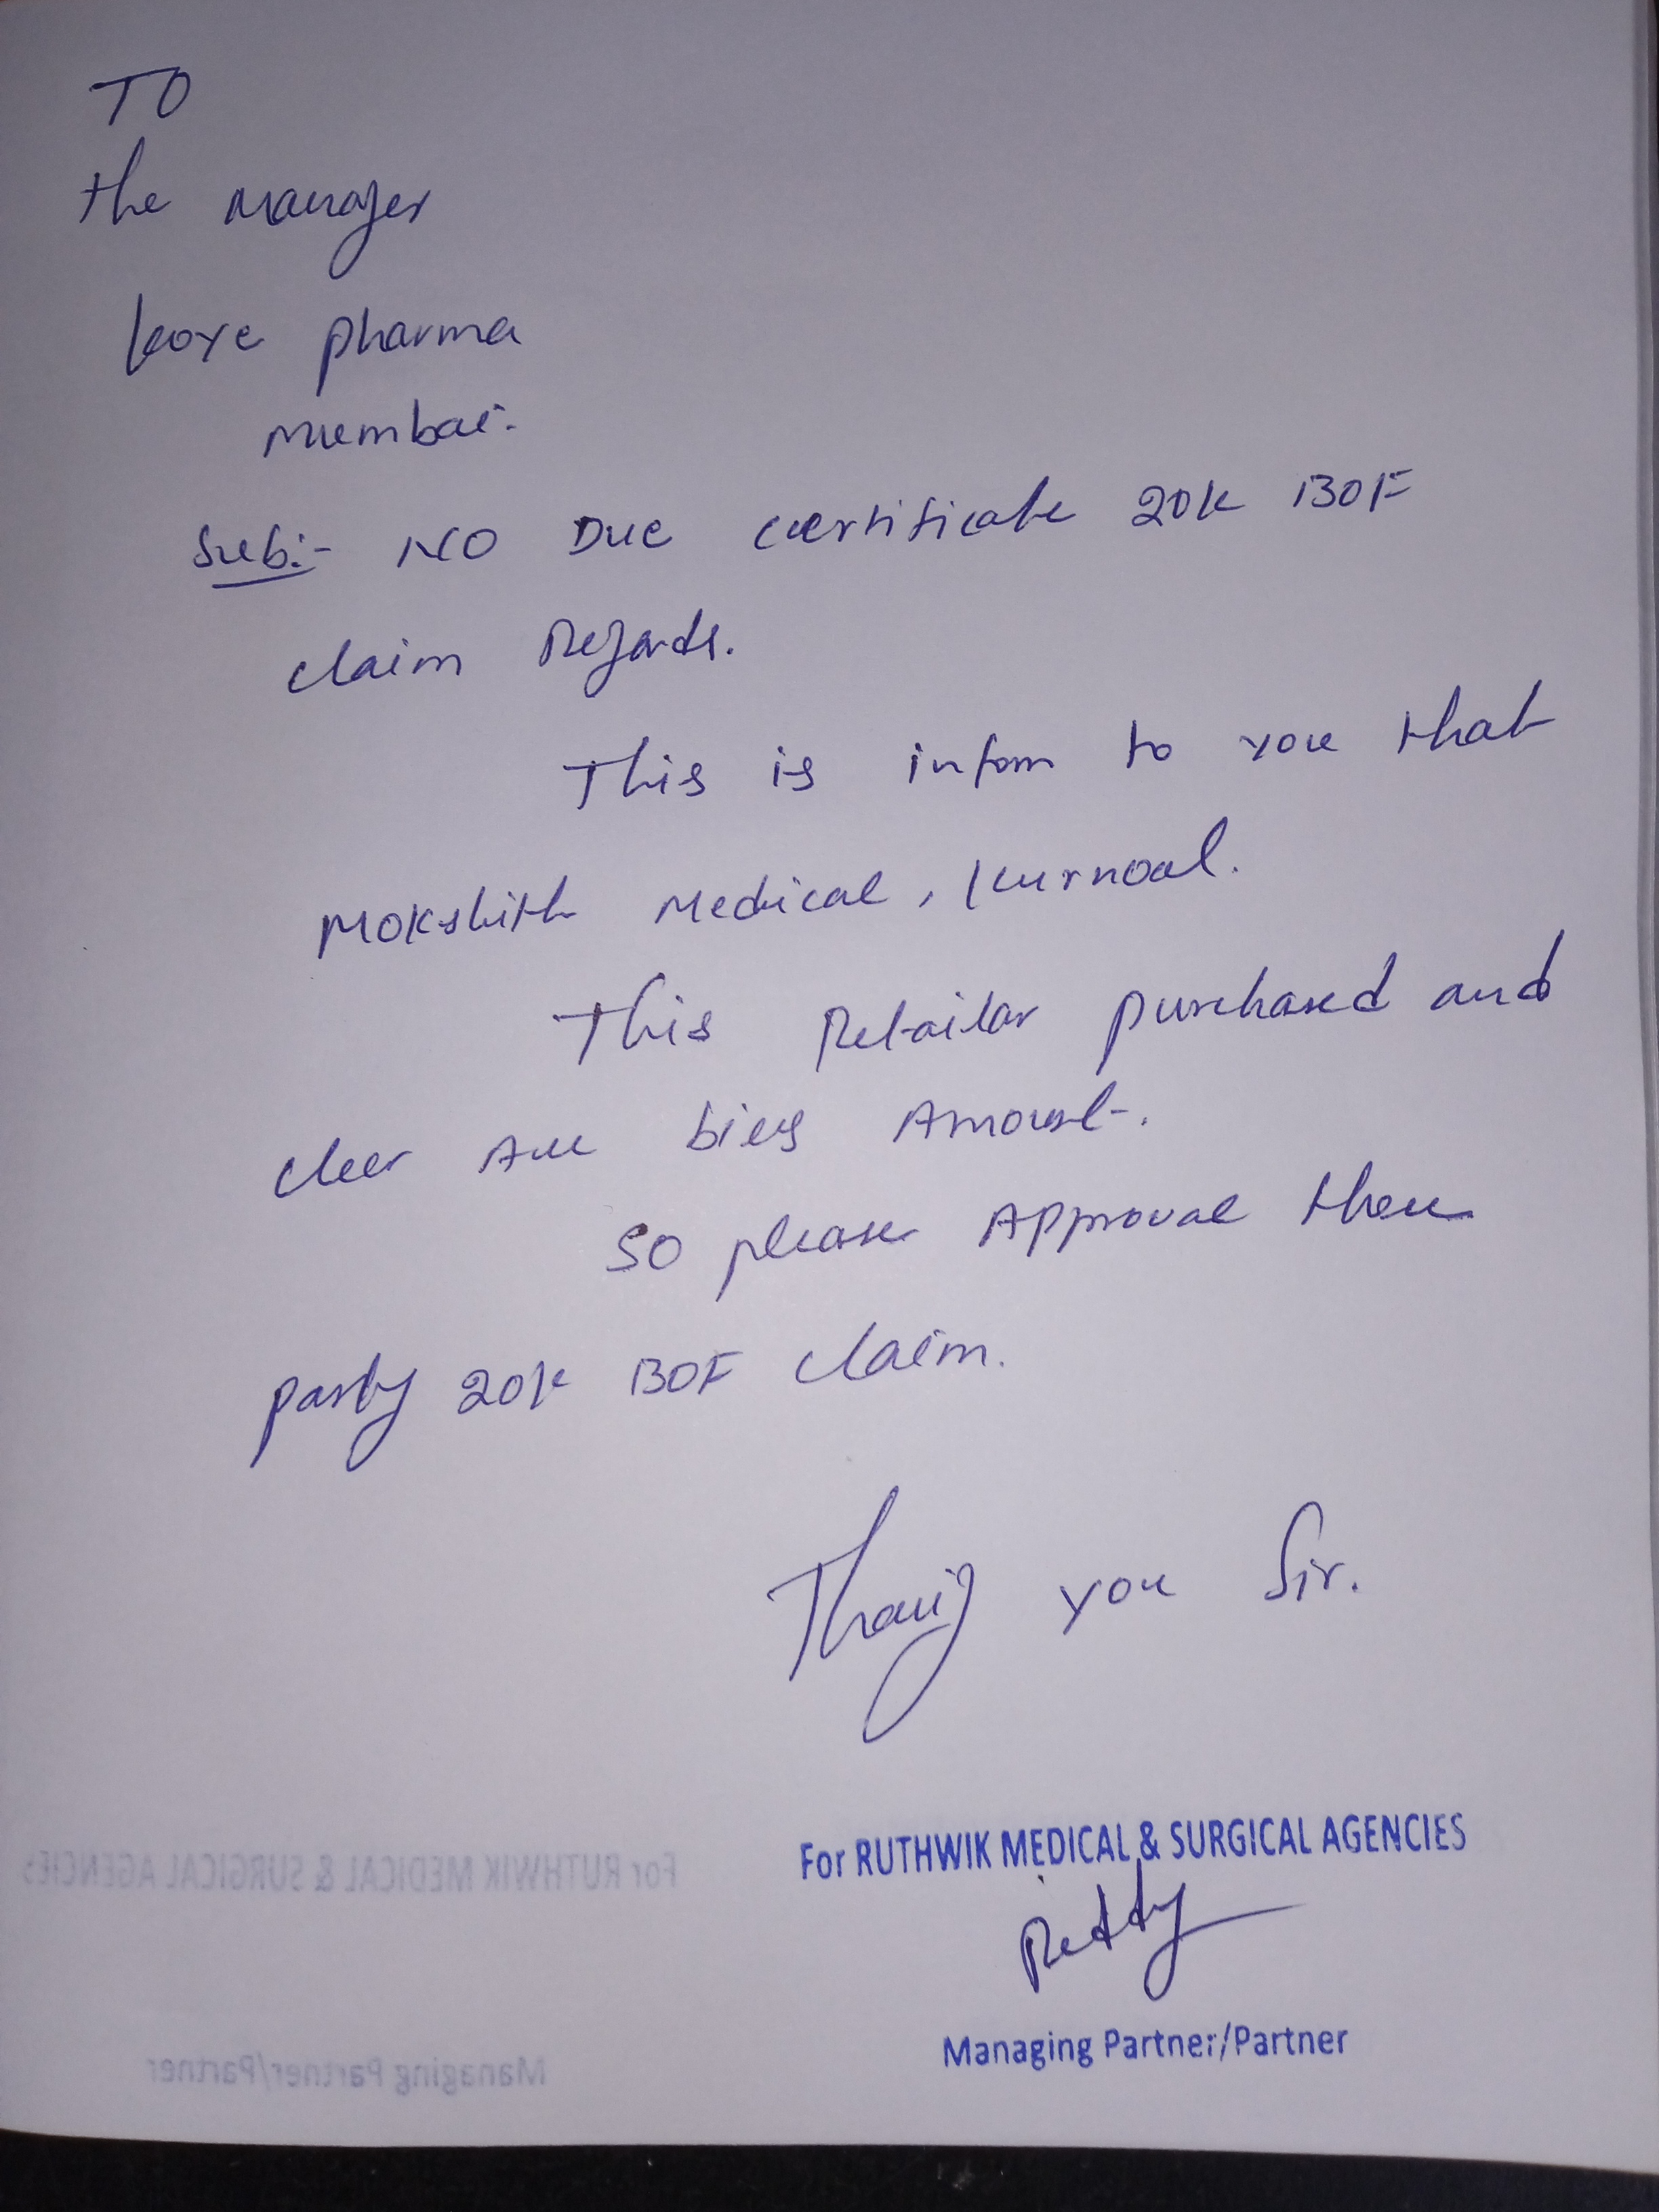 TO
the manager
koye pharma
mumbai.
Sub:- NO Due certificate 20k BOF
claim Regards.
This is inform to you that
Mokshith Medical, Kurnool.
This Retailar purchased and
cleer All bills Amount.
SO please Approval these
party 20k BOF claim.
Thank you Sir.
For RUTHWIK MEDICAL & SURGICAL AGENCIES
Reddy
Managing Partner/Partner
For RUTHWIK MEDICAL & SURGICAL AGENCIES
Managing Partner/Partner